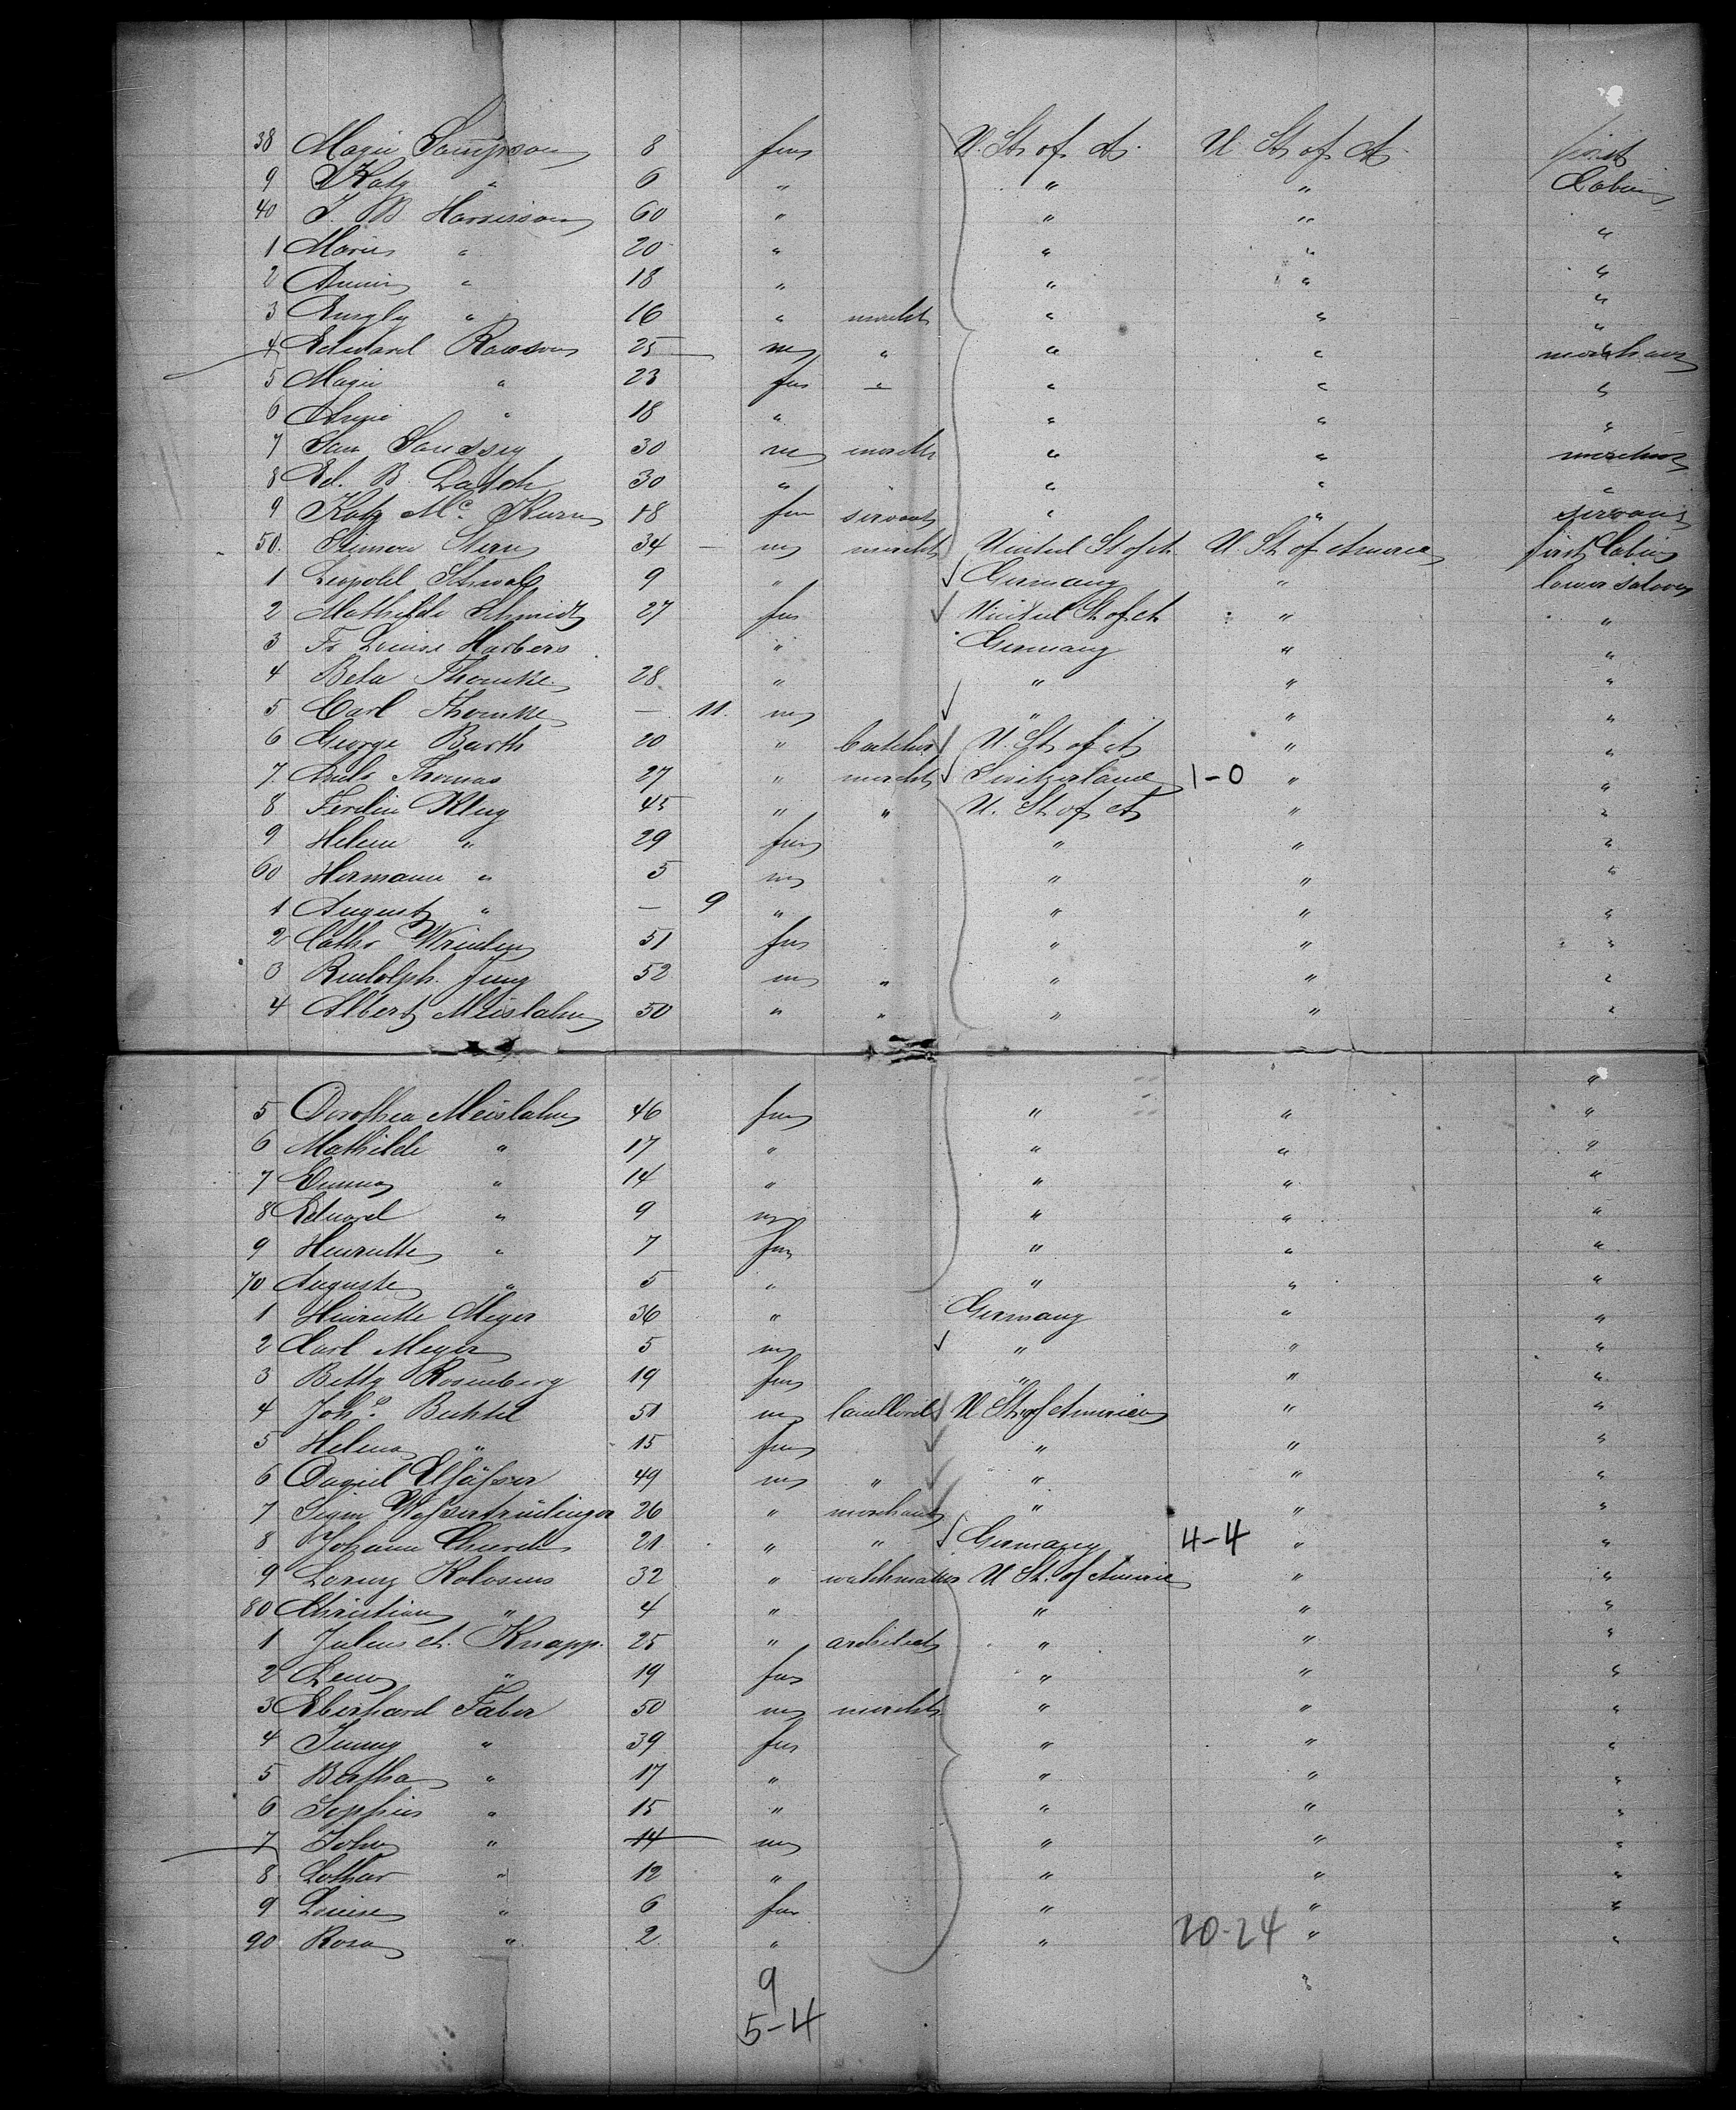 38 Magie Sampson 8 fm U. St. of A. U. St. of A. first
9 Katy " 6 " " " Cabin
40 J. B. Harrison 60 " " " "
1 Marie " 20 " " " "
2 Annie " 18 " " " "
3 " 16 " mercht " " "
4 Edward Rawson 25 m " " " merchant
5 Magie " 23 fm " " " "
6 " 18 " " " "
7 Sam 30 m mercht " " merchant
8 Ed. B. 30 " " " "
9 Katy Mc. Kurn 18 fm servant " " servant
50. Simon Stern 34 – m mercht United St of A. U. St. of America first Cabin
1 Leopold Schwab 9 " Germany " lower Saloon
2 Mathilde Schmidt 27 fm United St. of A " "
3 Fr Louise Harbers " Germany " "
4 Bela Thomke 28 " " " "
5 Carl Thomke — 11. m " " "
6 George Barth 20 " butcher U. St. of A " "
7. Thomas 27 " mercht Switzerland 1-0 " "
8 Ferdin Klug 45 " " U. St. of A " "
9 Helene " 29 fm " " "
60 Hermann " 5 m " " "
1 August " — 9 " " " "
2 Cathr 51 fm " " "
3 Rudolph. Jung 52 m " " " "
4 Albert Meislahn 50 " " " " "
"
5 Dorothea Meislahn 46 fm " " "
6 Mathilde " 17 " " " "
7 Emma " 14 " " " "
8 Eduard " 9 m " " "
9 Henriette " 7 fm " " "
70 Auguste " 5 " " " "
1 Henriette Meyer 36 " Germany " "
2 Carl Meyer 5 m " " "
3 Betty Rosenberg 19 fm " " "
4 Johs. Bechtel 51 m landlord U St. of America " "
5 Helena " 15 fm " " "
6 Daniel Elsässer 49 m " " " "
7 Sigm Wassertrüdinger 26 " merchant " " "
8 Johann 21 " " Germany 4-4 " "
9 Lorenz Koloseus 32 " watchmaker U St. of America " "
80 Christian " 4 " " " "
1 Julius A. Knapp. 25 " architect " " "
2 Lena " 19 fm " " "
3 Eberhard Faber 50 m mercht " " "
4 Jenny " 39 fm " " "
5 Bertha " 17 " " " "
6 Sophie " 15 " " " "
7 John " 14 m " " "
8 Lothar " 12 " " " "
9 Louise " 6 fm " " "
90 Rosa " 2 " " 20-24 " "
9 "
5-4